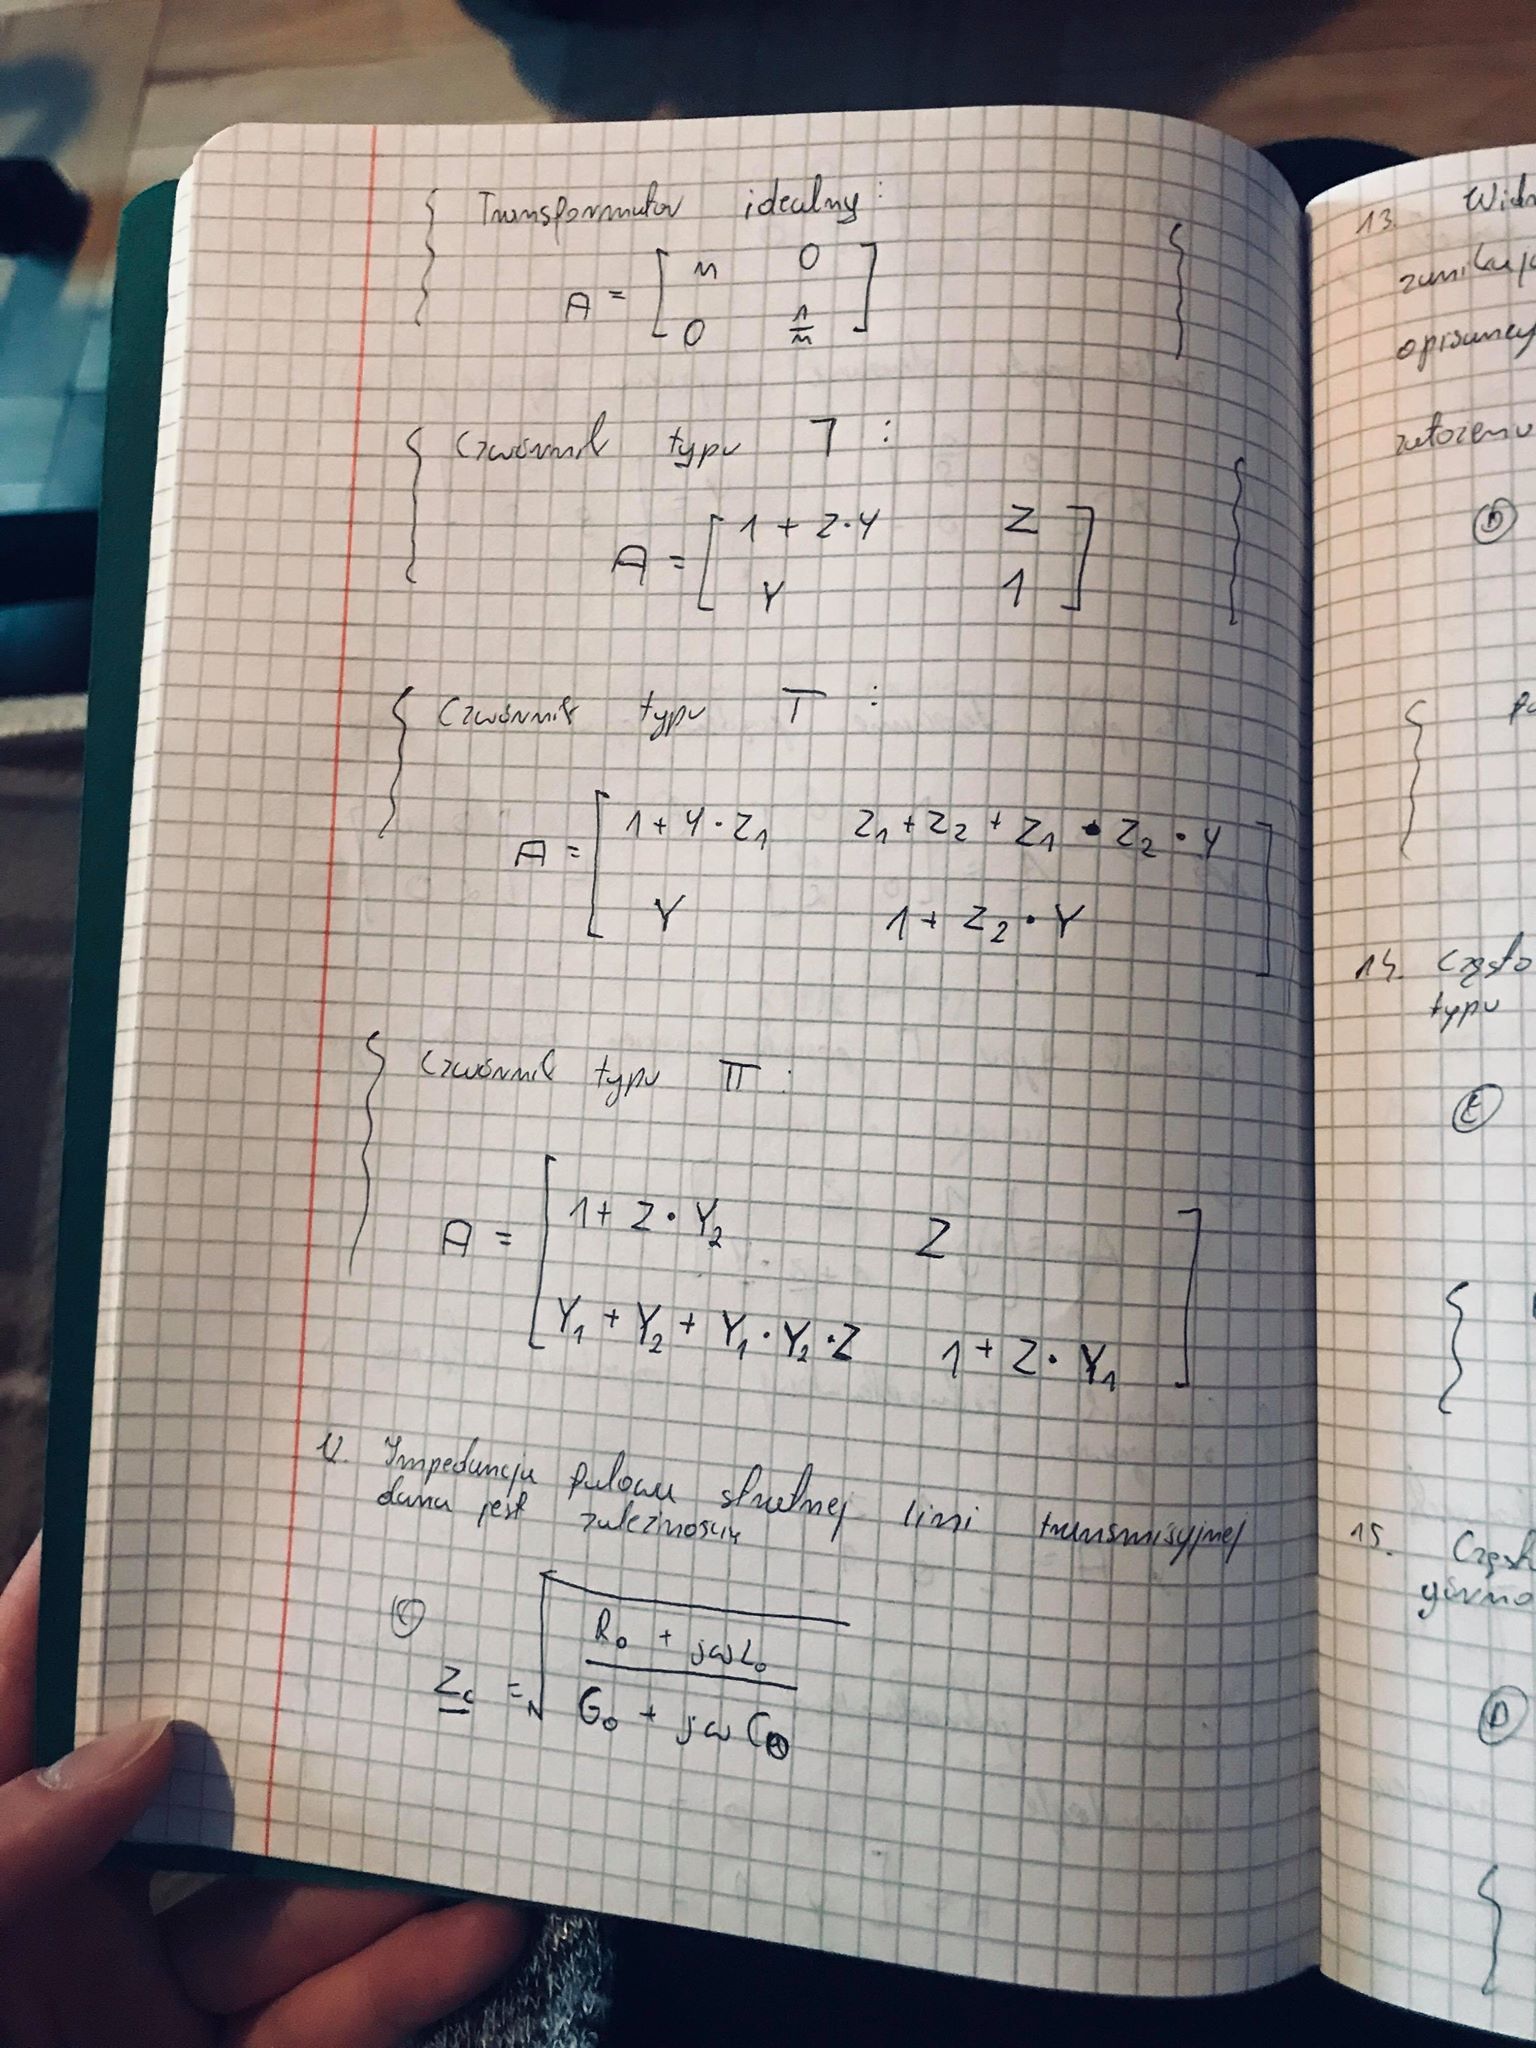 Transformator idealny:
A = [ n 0
0 1/n ]
Czwórnik typu ㄱ :
A = [ 1 + Z·Y Z
Y 1 ]
Czwórnik typu T :
A = [ 1 + Y·Z1 Z1 + Z2 + Z1 · Z2 · Y
Y 1 + Z2 · Y ]
Czwórnik typu Π :
A = [ 1 + Z · Y2 Z
Y1 + Y2 + Y1 · Y2 · Z 1 + Z · Y1 ]
12. Impedancja falowa stratnej linii transmisyjnej
dana jest zależnością
C
Zc = √ R0 + jωL0
G0 + jωC0
13.
opisanej
założeniu
D
14. Często
typu
E
15. Częst
górno
D